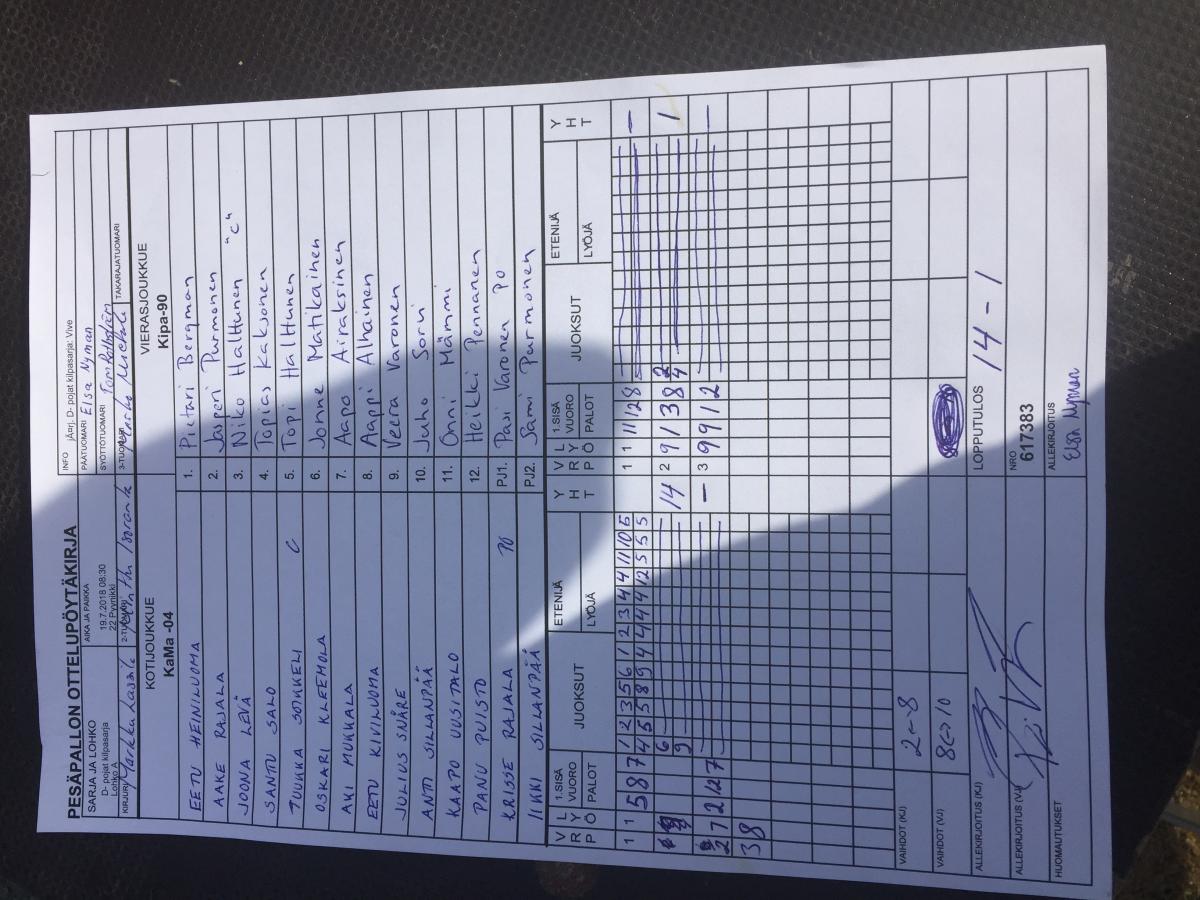 PESÄPALLON OTTELUPÖYTÄKIRJA
SARJA JA LOHKO
D- pojat kilpasarja
Lohko A
AIKA JA PAIKKA
19.7.2018 08:30
22 Pyynikki
INFO jÄrj. D- pojat kilpasarja: Vive
PÄÄTUOMARI Elsa Nyman
SYÖTTÖTUOMARI
KIRJURI
2-TUOMARI
3-TUOMARI
TAKARAJATUOMARI
KOTIJOUKKUE
KaMa -04
VIERASJOUKKUE
Kipa-90
EETU HEINILUOMA 1. Pietari Bergman
AAKE RAJALA 2. Jasperi Purmonen
JOONA LEVÄ 3. Niko Halttunen "C"
SANTU SALO 4. Topias Kaksonen
TUUKKA SOIKKELI C 5. Topi Halttunen
OSKARI KLEEMOLA 6. Jonne Matikainen
AKI MUKKALA 7. Aapo Airaksinen
EETU KIVILUOMA 8. Aappi Alhainen
JULIUS SNÅRE 9. Veera Varonen
ANTI SILLANPÄÄ 10. Juho Sorri
KAAPO UUSITALO 11. Onni Mämmi
PANU PUISTO 12. Heikki Pennanen
KRISSE RAJALA PJ1. Pasi Varonen PO
IIKKI SILLANPÄÄ PJ2. Sami Purmonen
V R P L Y Ö 1.SISÄ VUORO PALOT JUOKSUT ETENIJÄ LYÖJÄ Y H T V R P L Y Ö 1.SISÄ VUORO PALOT JUOKSUT ETENIJÄ LYÖJÄ Y H T
1 1 5 8 7 1 2 3 5 6 1 2 3 4 4 11 10 5 1 1 11 12 8 —
4 5 5 8 9 4 4 4 4 12 5 5 5
6 14 2 9 1 3 8 2 1
9 4
2 7 2 12 7 — 3 9 9 1 2 —
3 8
VAIHDOT (KJ) 2<-8
VAIHDOT (VJ) 8<->10
ALLEKIRJOITUS (KJ)
LOPPUTULOS 14 - 1
ALLEKIRJOITUS (VJ)
NRO
617383
HUOMAUTUKSET
ALLEKIRJOITUS
Elsa Nyman